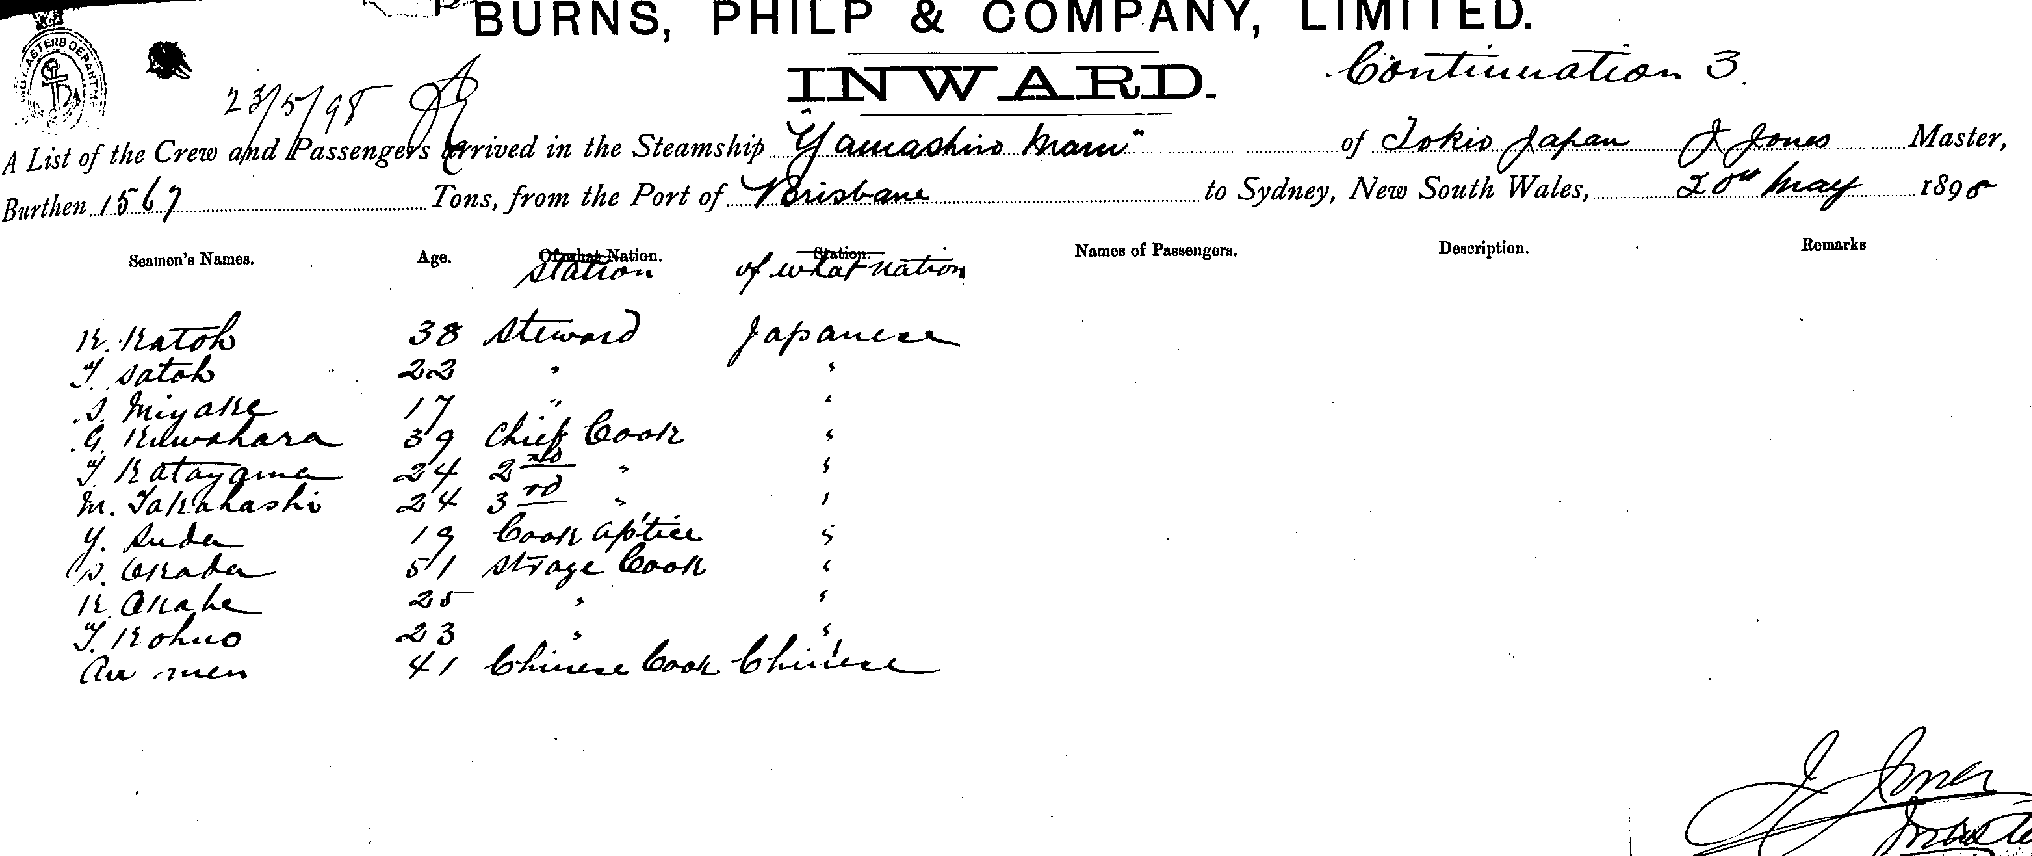 BURNS, PHILP & COMPANY, LIMITED.
INWARD. Continuation 3.
23/5/98
A List of the Crew and Passengers arrived in the Steamship "Yamashiro Maru" of Tokio Japan J Jones Master,
Burthen 1567 Tons, from the Port of Brisbane to Sydney, New South Wales, 20th May 1898
Seamen's Names. Age. Of what Nation. Station. Names of Passengers. Description. Remarks
Station of what nation
K. Katoh 38 Steward Japanese
T. Satoh 22 " "
S. Miyake 17 " "
G. Kuwahara 39 Chief Cook "
T. Katayama 24 2nd " "
M. Takahashi 24 3rd " "
Y. Suda 19 Cook ap'tice "
S. Okada 51 Strage Cook "
K. Akabe 25 " "
T. Kohno 23 " "
Au men 41 Chinese Cook Chinese
J Jones
Master